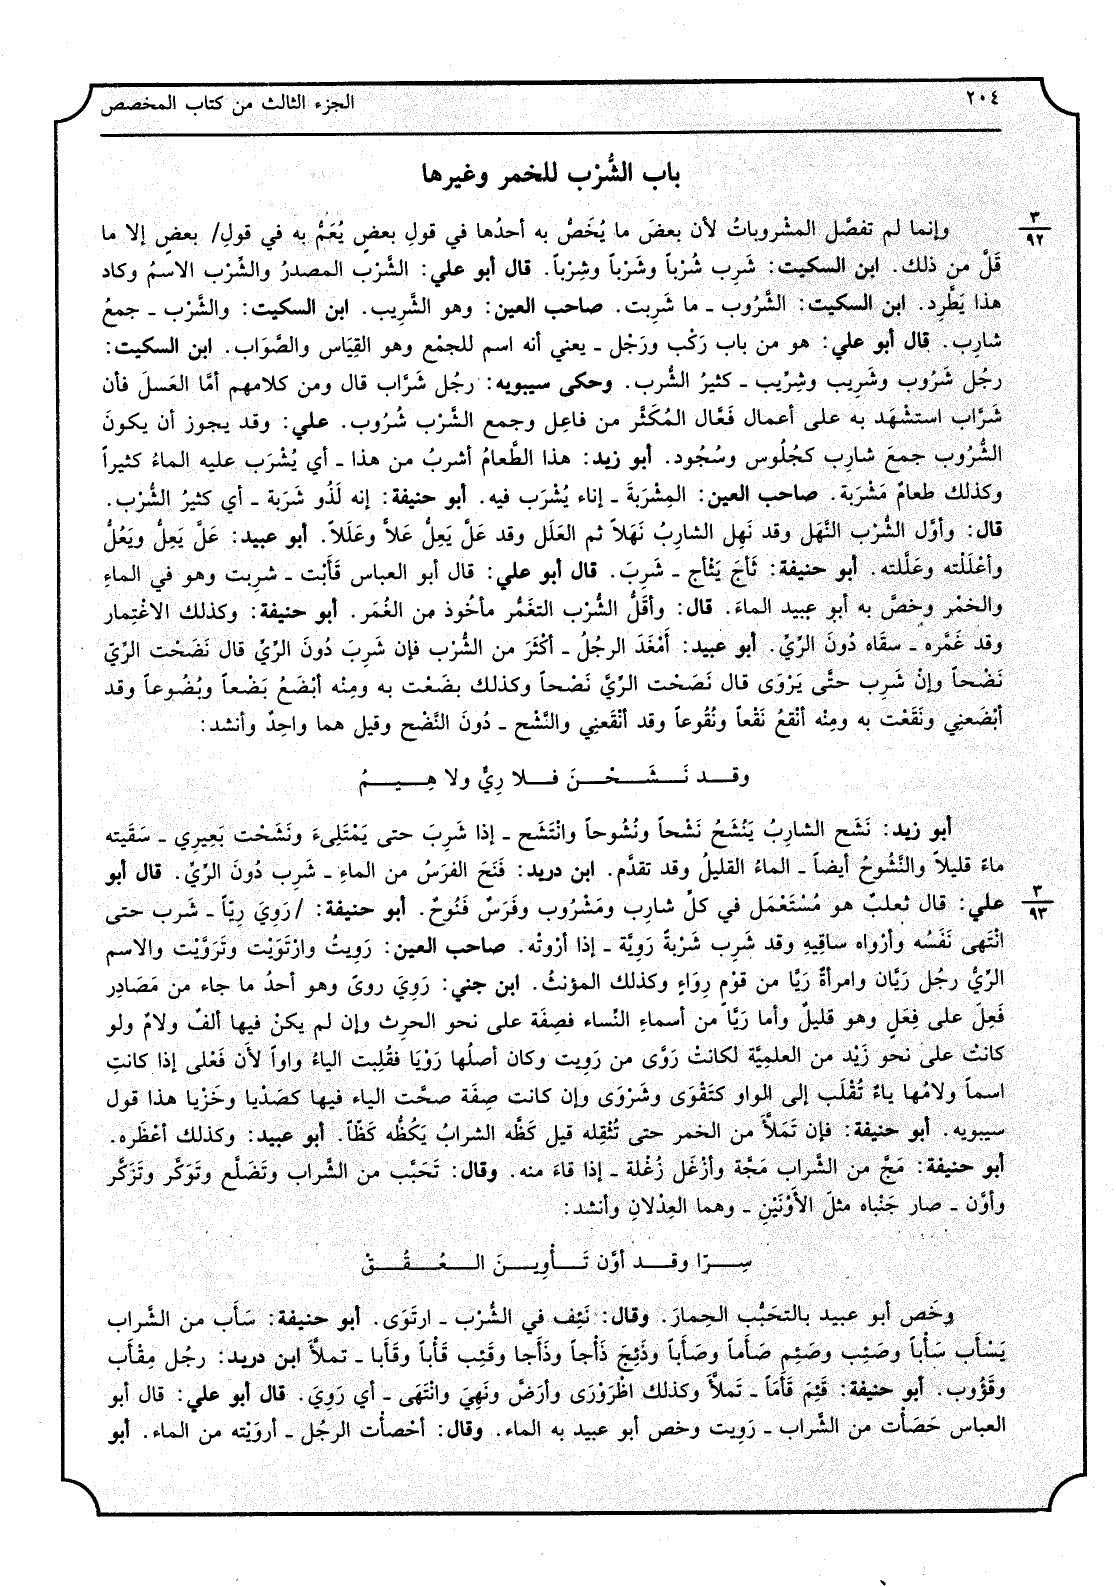 ٢٠٤ الجزء الثالث من كتاب المخصص
باب الشُّرْب للخمر وغيرها
وإنما لم تفصَّل المشْروباتُ لأن بعضَ ما يُخَصُّ به أحدُها في قولِ بعضٍ يُعَمُّ به في قولِ/ بعضٍ إلا ما
٣
٩٢
قَلَّ من ذلك. ابن السكيت: شَرِب شُرْباً وشَرْباً وشِرْباً. قال أبو علي: الشَّرْب المصدرُ والشِّرْب الاسمُ وكاد
هذا يَطَّرِد. ابن السكيت: الشَّرُوب ـ ما شَرِبت. صاحب العين: وهو الشَّرِيب. ابن السكيت: والشَّرْب ـ جمعُ
شارِب. قال أبو علي: هو من باب رَكْب ورَجْل ـ يعني أنه اسم للجمْع وهو القِيَاس والصَّوَاب. ابن السكيت:
رجُل شَرُوب وشَرِيب وشِرِّيب ـ كثيرُ الشُّرب. وحكى سيبويه: رجُل شَرَّاب قال ومن كلامهم أمَّا العَسلَ فأن
شَرَّاب استشْهَد به على أعمال فَعَّال المُكَثَّر من فاعِل وجمع الشَّرْب شُرُوب. علي: وقد يجوز أن يكونَ
الشُّرُوب جمعَ شارِب كجُلُوس وسُجُود. أبو زيد: هذا الطَّعامُ أشربُ من هذا ـ أي يُشْرَب عليه الماءُ كثيراً
وكذلك طعامٌ مَشْرَبة. صاحب العين: المِشْرَبةَ ـ إناء يُشْرَب فيه. أبو حنيفة: إنه لَذُو شَرَبة ـ أي كثيرُ الشُّرْب.
قال: وأوَّل الشُّرْب النَّهَل وقد نَهِل الشارِبُ نَهَلاً ثم العَلَل وقد عَلَّ يَعِلُّ عَلاًّ وعَلَلاً. أبو عبيد: عَلَّ يَعِلُّ ويَعُلُّ
وأعْلَلْته وعَلَّلته. أبو حنيفة: ثَأجَ يَثْأج ـ شَرِبَ. قال أبو علي: قال أبو العباس قَأَبْت ـ شرِبت وهو في الماءِ
والخمْر وخصَّ به أبو عبيد الماءَ. قال: وأقَلُّ الشُّرْب التغَمُّر مأخُوذ من الغُمَر. أبو حنيفة: وكذلك الاغْتِمار
وقد غَمَّره ـ سقَاه دُونَ الرِّيِّ. أبو عبيد: أمْغَدَ الرجُلُ ـ أكْثَرَ من الشُّرْب فإن شَرِبَ دُونَ الرِّيِّ قال نَضَحْت الرِّيّ
نَضْحاً وإنْ شَرِب حتَّى يَرْوَى قال نَصَحْت الرِّيَّ نَصْحاً وكذلك بضَعْت به ومِنْه أبْضَعُ بَضْعاً وبُضُوعاً وقد
أبْضَعنِي ونَقَعْت به ومِنْه أنْقعُ نَقْعاً ونُقُوعاً وقد أنْقَعنِي والنَّشْح ـ دُونَ النَّضْح وقيل هما واحِدٌ وأنشد:
وقــد نَــشَــحْــنَ فــلا رِيٌّ ولا هِــيــمُ
أبو زيد: نَشَح الشارِبُ يَنْشَحُ نَشْحاً ونُشُوحاً وانْتَشَح ـ إذا شَرِبَ حتى يَمْتَلِىءَ ونَشَحْت بَعِيرِي ـ سَقَيته
ماءً قليلاً والنَّشُوحُ أيضاً ـ الماءُ القليلُ وقد تقدَّم. ابن دريد: فَنَحَ الفرَسُ من الماءِ ـ شَرِب دُونَ الرِّيِّ. قال أبو
علي: قال ثعلبٌ هو مُسْتَعْمَل في كلِّ شارِب ومَشْرُوب وفَرَسٌ فَنُوحٌ. أبو حنيفة: /رَوِيَ رِيّاً ـ شَرب حتى
٣
٩٣
انْتَهى نَفَسُه وأرْواه ساقِيهِ وقد شَرِب شَرْبةً رَوِيَّة ـ إذا أرْوتْه. صاحب العين: رَوِيتُ وارْتَوَيْت وتَرَوَّيْت والاسم
الرِّيُّ رجُل رَيَّان وامرأةٌ رَيَّا من قوْمٍ رِوَاءٍ وكذلك المؤنثُ. ابن جني: رَوِيَ روىً وهو أحدُ ما جاء من مَصَادِر
فَعِلَ على فِعَلٍ وهو قليلٌ وأما رَيَّا من أسماءِ النِّساء فصِفَة على نحو الحرِث وإن لم يكنْ فيها ألفٌ ولامٌ ولو
كانتْ على نحو زَيْد من العلمِيَّة لكانتْ رَوَّى من رَوِيت وكان أصلُها رَوْيَا فقُلِبت الياءُ واواً لأن فَعْلى إذا كانتِ
اسماً ولامُها ياءٌ تُقْلَب إلى الواو كتَقْوَى وشَرْوَى وإن كانت صِفَة صحَّت الياء فيها كصَدْيا وخَزْيا هذا قول
سيبويه. أبو حنيفة: فإن تَمَلأَّ من الخمر حتى تُثْقِله قيل كَظَّه الشرابُ يَكُظُّه كَظّاً. أبو عبيد: وكذلك أعْظَره.
أبو حنيفة: مَجَّ من الشَّراب مَجَّة وأزْغَل زُغْلة ـ إذا قاءَ منه. وقال: تَحَبَّب من الشَّراب وتَضَلَّع وتَوَكَّر وتَزَكَّر
وأوَّن ـ صار جَنْباه مثلَ الأَوْنَيْنِ ـ وهما العِدْلانِ وأنشد:
سِــرًا وقــد أوَّن تَــأْوِيــنَ الــعُــقُــقْ
وخَص أبو عبيد بالتحَبُّب الحِمارَ. وقال: نَئِف في الشُّرْب ـ ارتَوَى. أبو حنيفة: سَأَب من الشَّراب
يَسْأَب سَأْباً وصَئِب وصَئِم صَأَماً وصَأَباً وذَئِجَ ذَأْجاً وذَأَجا وقَئِب قَأْباً وقَأَبا ـ تملأَّ ابن دريد: رجُل مِقْأَب
وقَؤُوب. أبو حنيفة: قَئِمَ قَأَمَاً ـ تَملأَّ وكذلك اظْرَوْرَى وأرَضَّ ونَهِيَ وانْتَهَى ـ أي رَوِيَ. قال أبو علي: قال أبو
العباس حَصَأْت من الشَّراب ـ رَوِيت وخص أبو عبيد به الماء. وقال: أحْصأْت الرجُل ـ أروَيْته من الماء. أبو